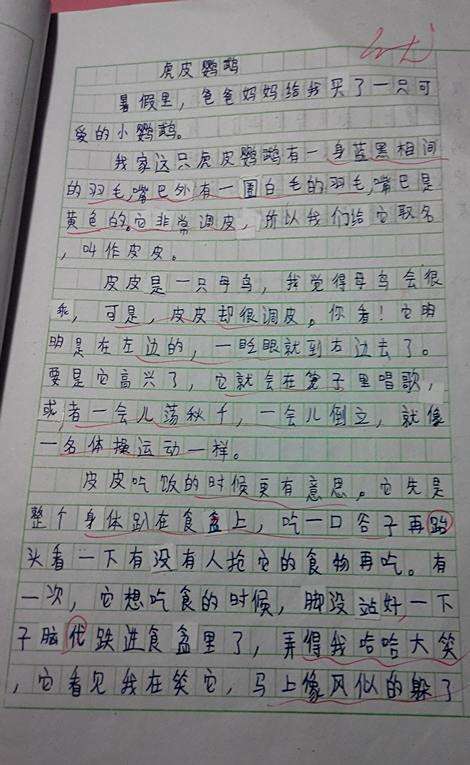 虎皮鹦鹉
暑假里，爸爸妈妈给我买了一只可
爱的小鹦鹉。
我家这只虎皮鹦鹉有一身蓝黑相间
的羽毛,嘴巴外有一圈白毛的羽毛,嘴巴是
黄色的。它非常调皮，所以我们给它取名
，叫作皮皮。
皮皮是一只母鸟，我觉得母鸟会很
乖，可是，皮皮却很调皮。你看！它明
明是在左边的，一眨眼就到右边去了。
要是它高兴了，它就会在笼子里唱歌，
或者一会儿荡秋千，一会儿倒立，就像
一名体操运动一样。
皮皮吃饭的时候更有意思。它先是
整个身体趴在食盒上，吃一口谷子再跆
头看一下有没有人抢它的食物再吃。有
一次，它想吃食的时候，脚没站好,一下
子脑代跌进食盒里了，弄得我哈哈大笑
，它看见我在笑它，马上像风似的躲了